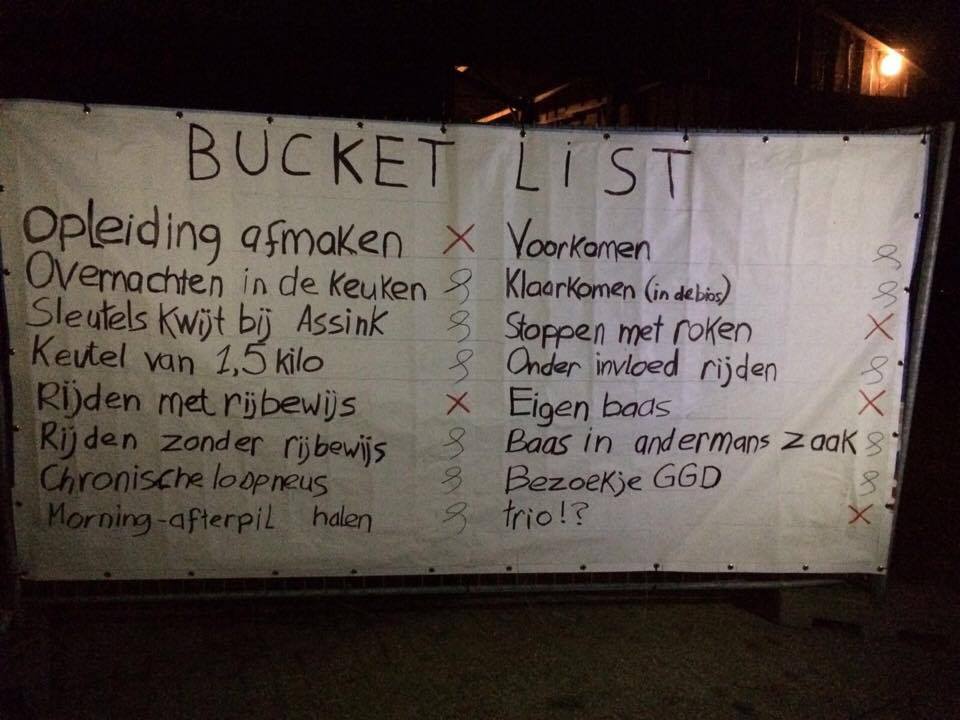 BUCKET LiST
Opleiding afmaken X
Overnachten in de keuken
Sleutels kwijt bij Assink
Keutel van 1,5 kilo
Rijden met rijbewijs X
Rijden zonder rijbewijs
Chronische loopneus
Morning-afterpil halen
Voorkomen
Klaarkomen (in de bios)
Stoppen met roken X
Onder invloed rijden
Eigen baas X
Baas in andermans zaak
Bezoekje GGD
trio!? X